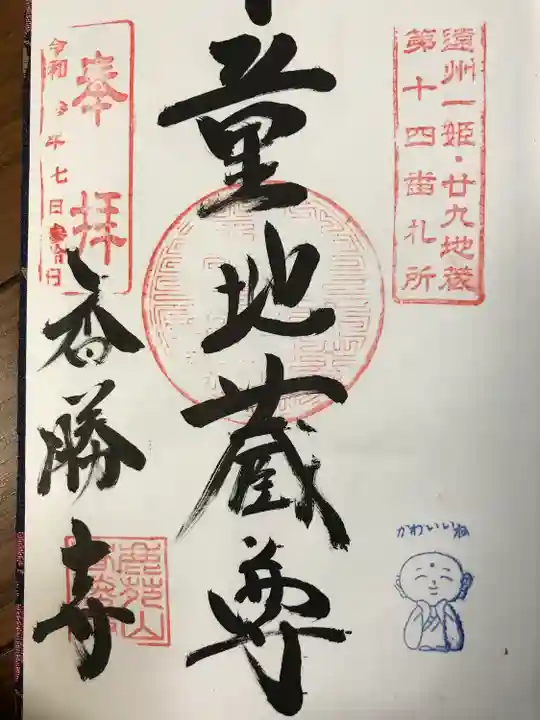 遠州一姫・廿九地蔵
第十四番札所
童地蔵尊
奉拝
令和 年七日
香勝寺
鹿苑山
かわいいね